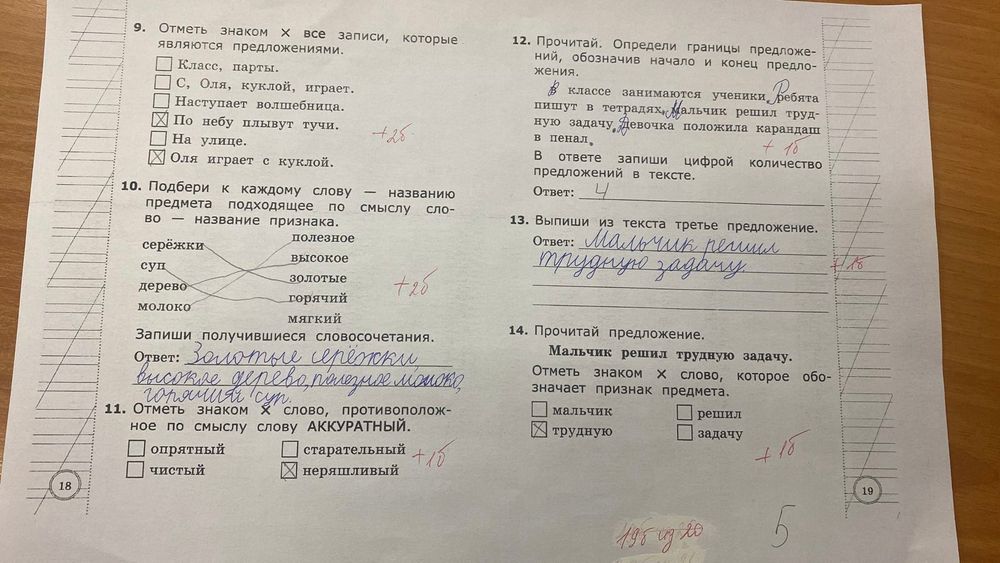 9. Отметь знаком × все записи, которые
являются предложениями.
Класс, парты.
С, Оля, куклой, играет.
Наступает волшебница.
По небу плывут тучи.
На улице.
Оля играет с куклой.
+2б
10. Подбери к каждому слову — названию
предмета подходящее по смыслу сло-
во — название признака.
серёжки полезное
суп высокое
дерево золотые
молоко горячий
мягкий
+2б
Запиши получившиеся словосочетания.
Ответ: Золотые серёжки,
высокое дерево, полезное молоко,
горячий суп.
11. Отметь знаком × слово, противополож-
ное по смыслу слову АККУРАТНЫЙ.
опрятный старательный
чистый неряшливый
+1б
18
12. Прочитай. Определи границы предложе-
ний, обозначив начало и конец предло-
жения.
В классе занимаются ученики. Ребята
пишут в тетрадях. Мальчик решил труд-
ную задачу. Девочка положила карандаш
в пенал.
+1б
В ответе запиши цифрой количество
предложений в тексте.
Ответ: 4
13. Выпиши из текста третье предложение.
Ответ: Мальчик решил
трудную задачу.
+1б
14. Прочитай предложение.
Мальчик решил трудную задачу.
Отметь знаком × слово, которое обо-
значает признак предмета.
мальчик решил
трудную задачу
+1б
19
19б из 20
5